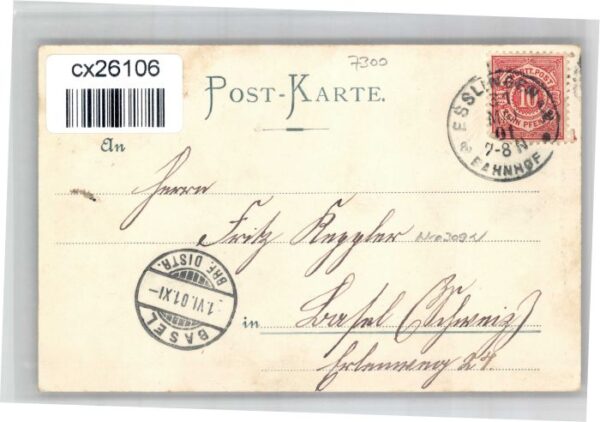 cx26106
7300
POST-KARTE.
ESSLINGEN a/N
31
01
7-8 N
BAHNHOF
10
ZEHN PFENNIG
An
Herrn
Fritz Keppler
BASEL
1.VI.01.XI-
BRF. DISTR.
in Basel (Schweiz)
Erlenweg 27.